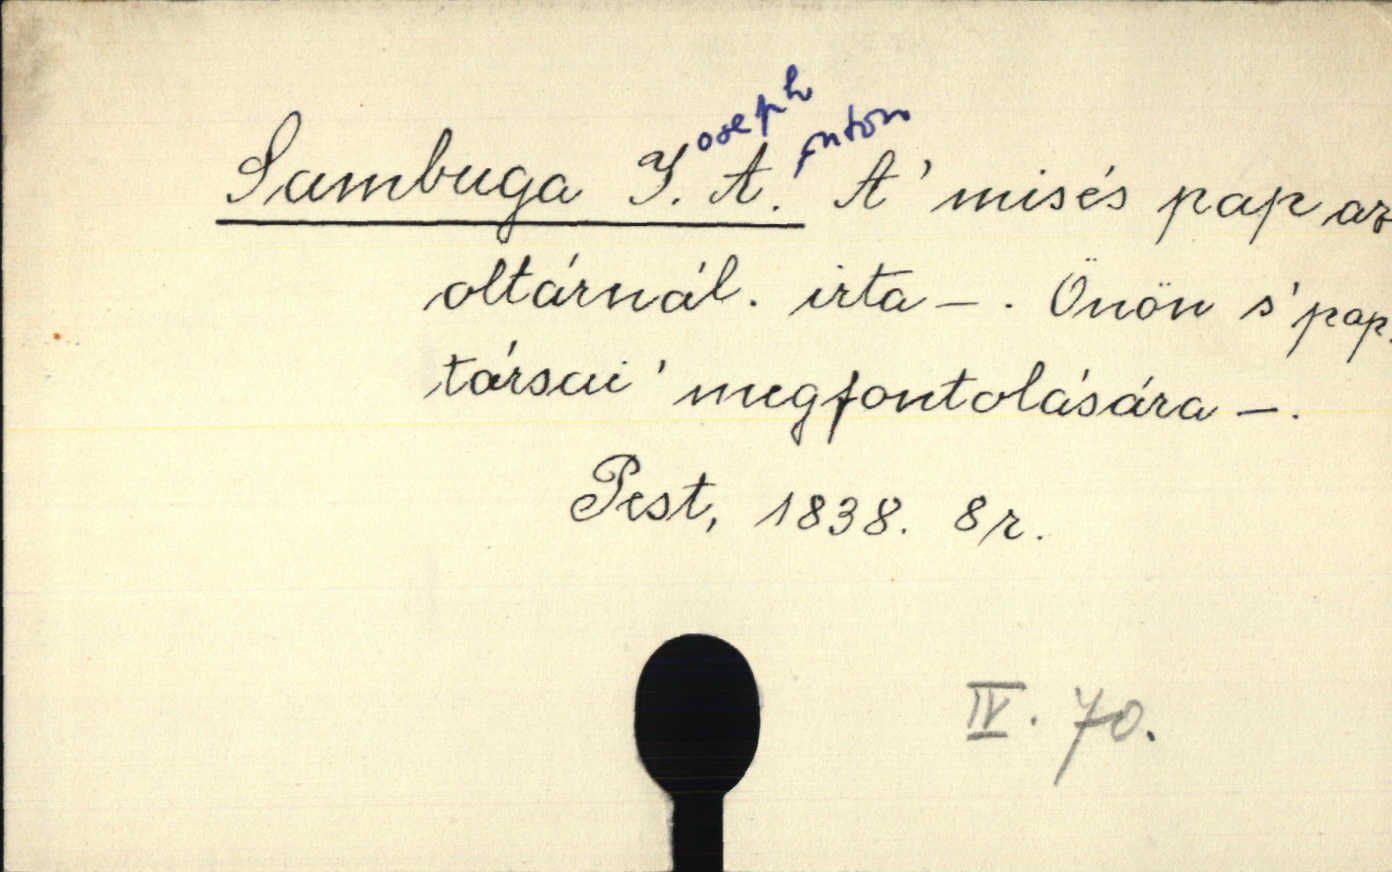 oseph
nton
Sambuga J. A. A' misés pap az
oltárnál. irta —. Önön s' pap
társai' megfontolására —.
Pest, 1838. 8r.
IV. 70.